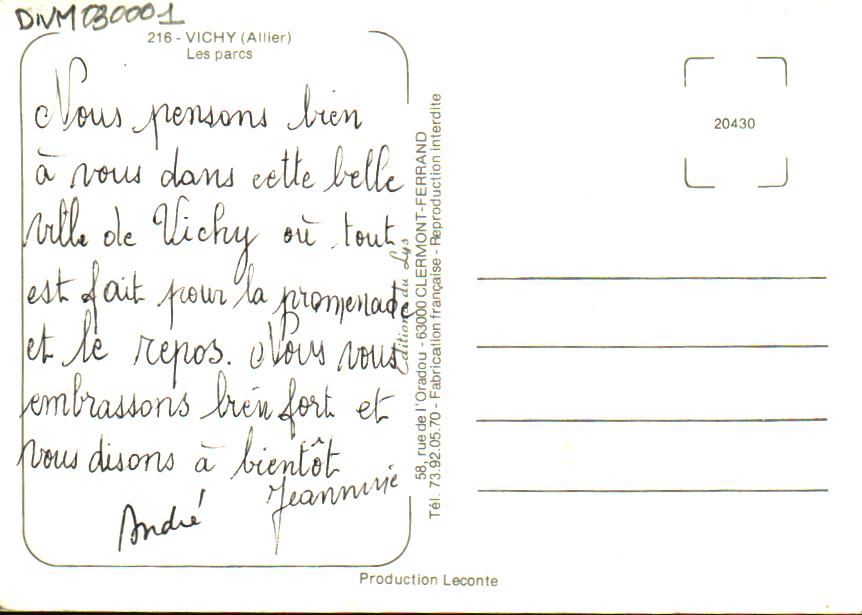 DIVM030001
216 - VICHY (Allier)
Les parcs
Nous pensons bien
à vous dans cette belle
ville de Vichy où tout
est fait pour la promenade
et le repos. Nous vous
embrassons bien fort et
vous disons à bientôt
Jeannine
André
Editions du Lys
58, rue de l'Oradou - 63000 CLERMONT-FERRAND
Tél. 73.92.05.70 - Fabrication française - Reproduction interdite
20430
Production Leconte